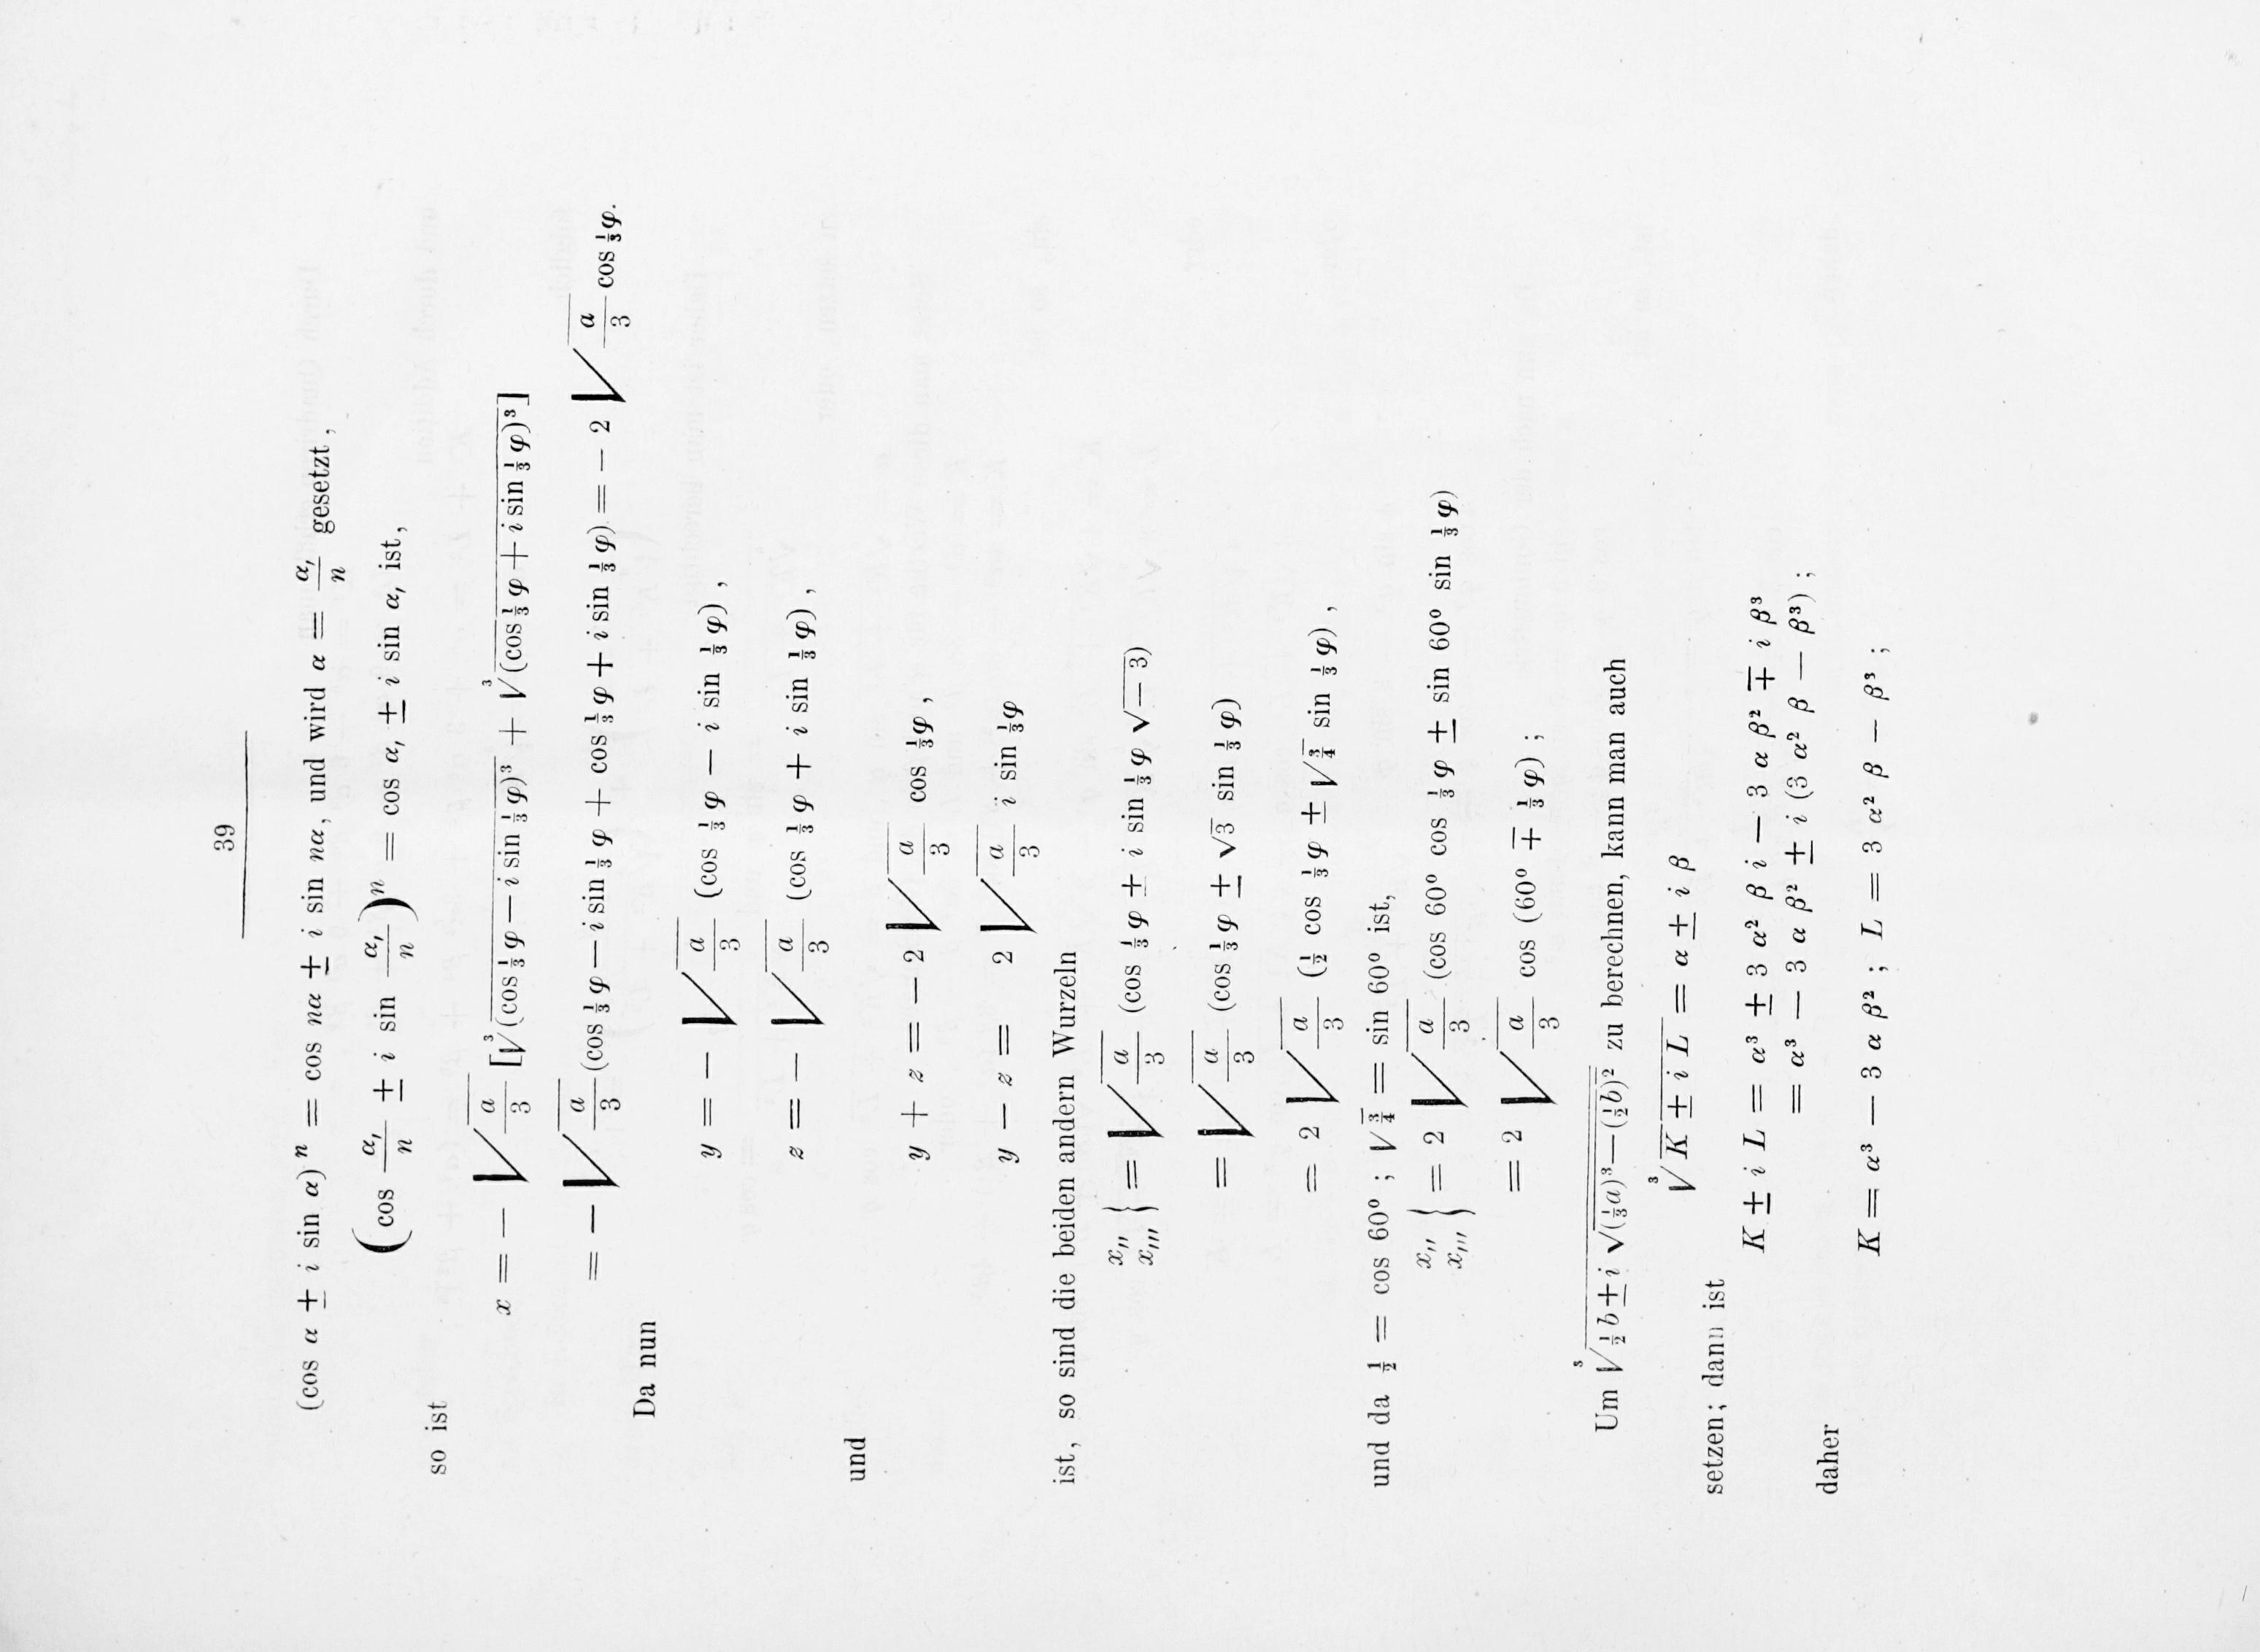 39
(cos α ± i sin α)ⁿ = cos nα ± i sin nα, und wird α = α,/n gesetzt,
(cos α,/n ± i sin α,/n)ⁿ = cos α, ± i sin α, ist,
so ist
x = − √(a/3) [∛(cos ⅓φ − i sin ⅓φ)³ + ∛(cos ⅓φ + i sin ⅓φ)³]
= − √(a/3) (cos ⅓φ − i sin ⅓φ + cos ⅓φ + i sin ⅓φ) = − 2 √(a/3) cos ⅓φ.
Da nun
y = − √(a/3) (cos ⅓φ − i sin ⅓φ),
z = − √(a/3) (cos ⅓φ + i sin ⅓φ),
und
y + z = − 2 √(a/3) cos ⅓φ,
y − z = 2 √(a/3) i sin ⅓φ
ist, so sind die beiden andern Wurzeln
x,, x,,, } = √(a/3) (cos ⅓φ ± i sin ⅓φ √−3)
= √(a/3) (cos ⅓φ ± √3 sin ⅓φ)
= 2 √(a/3) (½ cos ⅓φ ± √¾ sin ⅓φ),
und da ½ = cos 60⁰ ; √¾ = sin 60⁰ ist,
x,, x,,, } = 2 √(a/3) (cos 60⁰ cos ⅓φ ± sin 60⁰ sin ⅓φ)
= 2 √(a/3) cos (60⁰ ∓ ⅓φ) ;
Um ∛(½b ± i √((⅓a)³ − (½b)²)) zu berechnen, kann man auch
∛(K ± i L) = α ± i β
setzen; dann ist
K ± i L = α³ ± 3 α² β i − 3 α β² ∓ i β³
= α³ − 3 α β² ± i (3 α² β − β³) ;
daher
K = α³ − 3 α β² ; L = 3 α² β − β³ ;